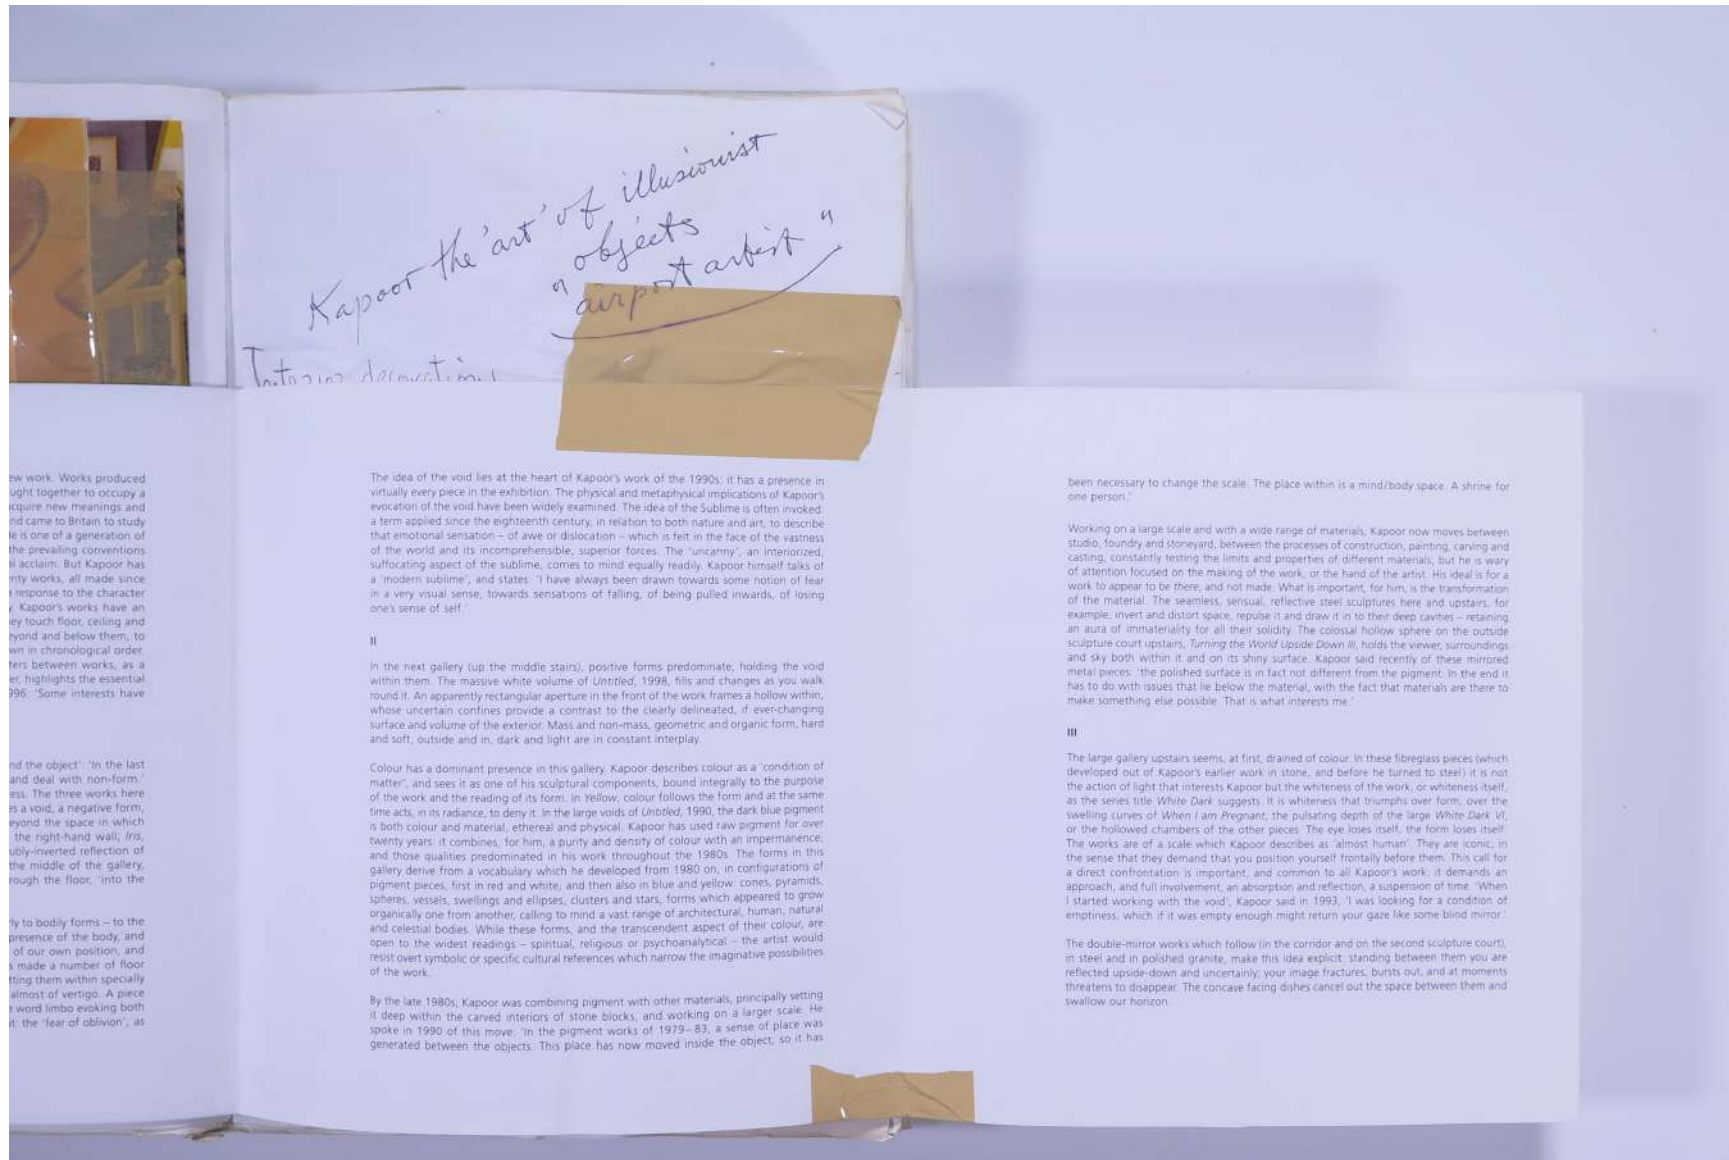 Kapoor the 'art' of illusionist
objects
"airport artist"
Interior
ew work. Works produced
ught together to occupy a
cquire new meanings and
nd came to Britain to study
e is one of a generation of
the prevailing conventions
l acclaim. But Kapoor has
nty works, all made since
response to the character
. Kapoor's works have an
ey touch floor, ceiling and
eyond and below them, to
wn in chronological order.
ters between works, as a
er, highlights the essential
996: 'Some interests have
nd the object': 'In the last
and deal with non-form.'
ess. The three works here
es a void, a negative form,
eyond the space in which
the right-hand wall; Iris,
ubly-inverted reflection of
the middle of the gallery,
rough the floor, 'into the
ly to bodily forms – to the
presence of the body, and
of our own position, and
s made a number of floor
tting them within specially
almost of vertigo. A piece
word limbo evoking both
t: the 'fear of oblivion', as
The idea of the void lies at the heart of Kapoor's work of the 1990s: it has a presence in
virtually every piece in the exhibition. The physical and metaphysical implications of Kapoor's
evocation of the void have been widely examined. The idea of the Sublime is often invoked:
a term applied since the eighteenth century, in relation to both nature and art, to describe
that emotional sensation – of awe or dislocation – which is felt in the face of the vastness
of the world and its incomprehensible, superior forces. The 'uncanny', an interiorized,
suffocating aspect of the sublime, comes to mind equally readily. Kapoor himself talks of
a 'modern sublime', and states: 'I have always been drawn towards some notion of fear
in a very visual sense, towards sensations of falling, of being pulled inwards, of losing
one's sense of self.'
II
In the next gallery (up the middle stairs), positive forms predominate, holding the void
within them. The massive white volume of Untitled, 1998, fills and changes as you walk
round it. An apparently rectangular aperture in the front of the work frames a hollow within,
whose uncertain confines provide a contrast to the clearly delineated, if ever-changing
surface and volume of the exterior. Mass and non-mass, geometric and organic form, hard
and soft, outside and in, dark and light are in constant interplay.
Colour has a dominant presence in this gallery. Kapoor describes colour as a 'condition of
matter', and sees it as one of his sculptural components, bound integrally to the purpose
of the work and the reading of its form. In Yellow, colour follows the form and at the same
time acts, in its radiance, to deny it. In the large voids of Untitled, 1990, the dark blue pigment
is both colour and material, ethereal and physical. Kapoor has used raw pigment for over
twenty years: it combines, for him, a purity and density of colour with an impermanence,
and those qualities predominated in his work throughout the 1980s. The forms in this
gallery derive from a vocabulary which he developed from 1980 on, in configurations of
pigment pieces, first in red and white, and then also in blue and yellow: cones, pyramids,
spheres, vessels, swellings and ellipses, clusters and stars, forms which appeared to grow
organically one from another, calling to mind a vast range of architectural, human, natural
and celestial bodies. While these forms, and the transcendent aspect of their colour, are
open to the widest readings – spiritual, religious or psychoanalytical – the artist would
resist overt symbolic or specific cultural references which narrow the imaginative possibilities
of the work.
By the late 1980s, Kapoor was combining pigment with other materials, principally setting
it deep within the carved interiors of stone blocks, and working on a larger scale. He
spoke in 1990 of this move: 'In the pigment works of 1979–83, a sense of place was
generated between the objects. This place has now moved inside the object, so it has
been necessary to change the scale. The place within is a mind/body space. A shrine for
one person.'
Working on a large scale and with a wide range of materials, Kapoor now moves between
studio, foundry and stoneyard, between the processes of construction, painting, carving and
casting, constantly testing the limits and properties of different materials; but he is wary
of attention focused on the making of the work, or the hand of the artist. His ideal is for a
work to appear to be there, and not made. What is important, for him, is the transformation
of the material. The seamless, sensual, reflective steel sculptures here and upstairs, for
example, invert and distort space, repulse it and draw it in to their deep cavities – retaining
an aura of immateriality for all their solidity. The colossal hollow sphere on the outside
sculpture court upstairs, Turning the World Upside Down III, holds the viewer, surroundings
and sky both within it and on its shiny surface. Kapoor said recently of these mirrored
metal pieces: 'the polished surface is in fact not different from the pigment. In the end it
has to do with issues that lie below the material, with the fact that materials are there to
make something else possible. That is what interests me.'
III
The large gallery upstairs seems, at first, drained of colour. In these fibreglass pieces (which
developed out of Kapoor's earlier work in stone, and before he turned to steel) it is not
the action of light that interests Kapoor but the whiteness of the work, or whiteness itself,
as the series title White Dark suggests. It is whiteness that triumphs over form, over the
swelling curves of When I am Pregnant, the pulsating depth of the large White Dark VI,
or the hollowed chambers of the other pieces. The eye loses itself, the form loses itself.
The works are of a scale which Kapoor describes as 'almost human'. They are iconic, in
the sense that they demand that you position yourself frontally before them. This call for
a direct confrontation is important, and common to all Kapoor's work: it demands an
approach, and full involvement, an absorption and reflection, a suspension of time. 'When
I started working with the void', Kapoor said in 1993, 'I was looking for a condition of
emptiness, which if it was empty enough might return your gaze like some blind mirror.'
The double-mirror works which follow (in the corridor and on the second sculpture court),
in steel and in polished granite, make this idea explicit: standing between them you are
reflected upside-down and uncertainly; your image fractures, bursts out, and at moments
threatens to disappear. The concave facing dishes cancel out the space between them and
swallow our horizon.